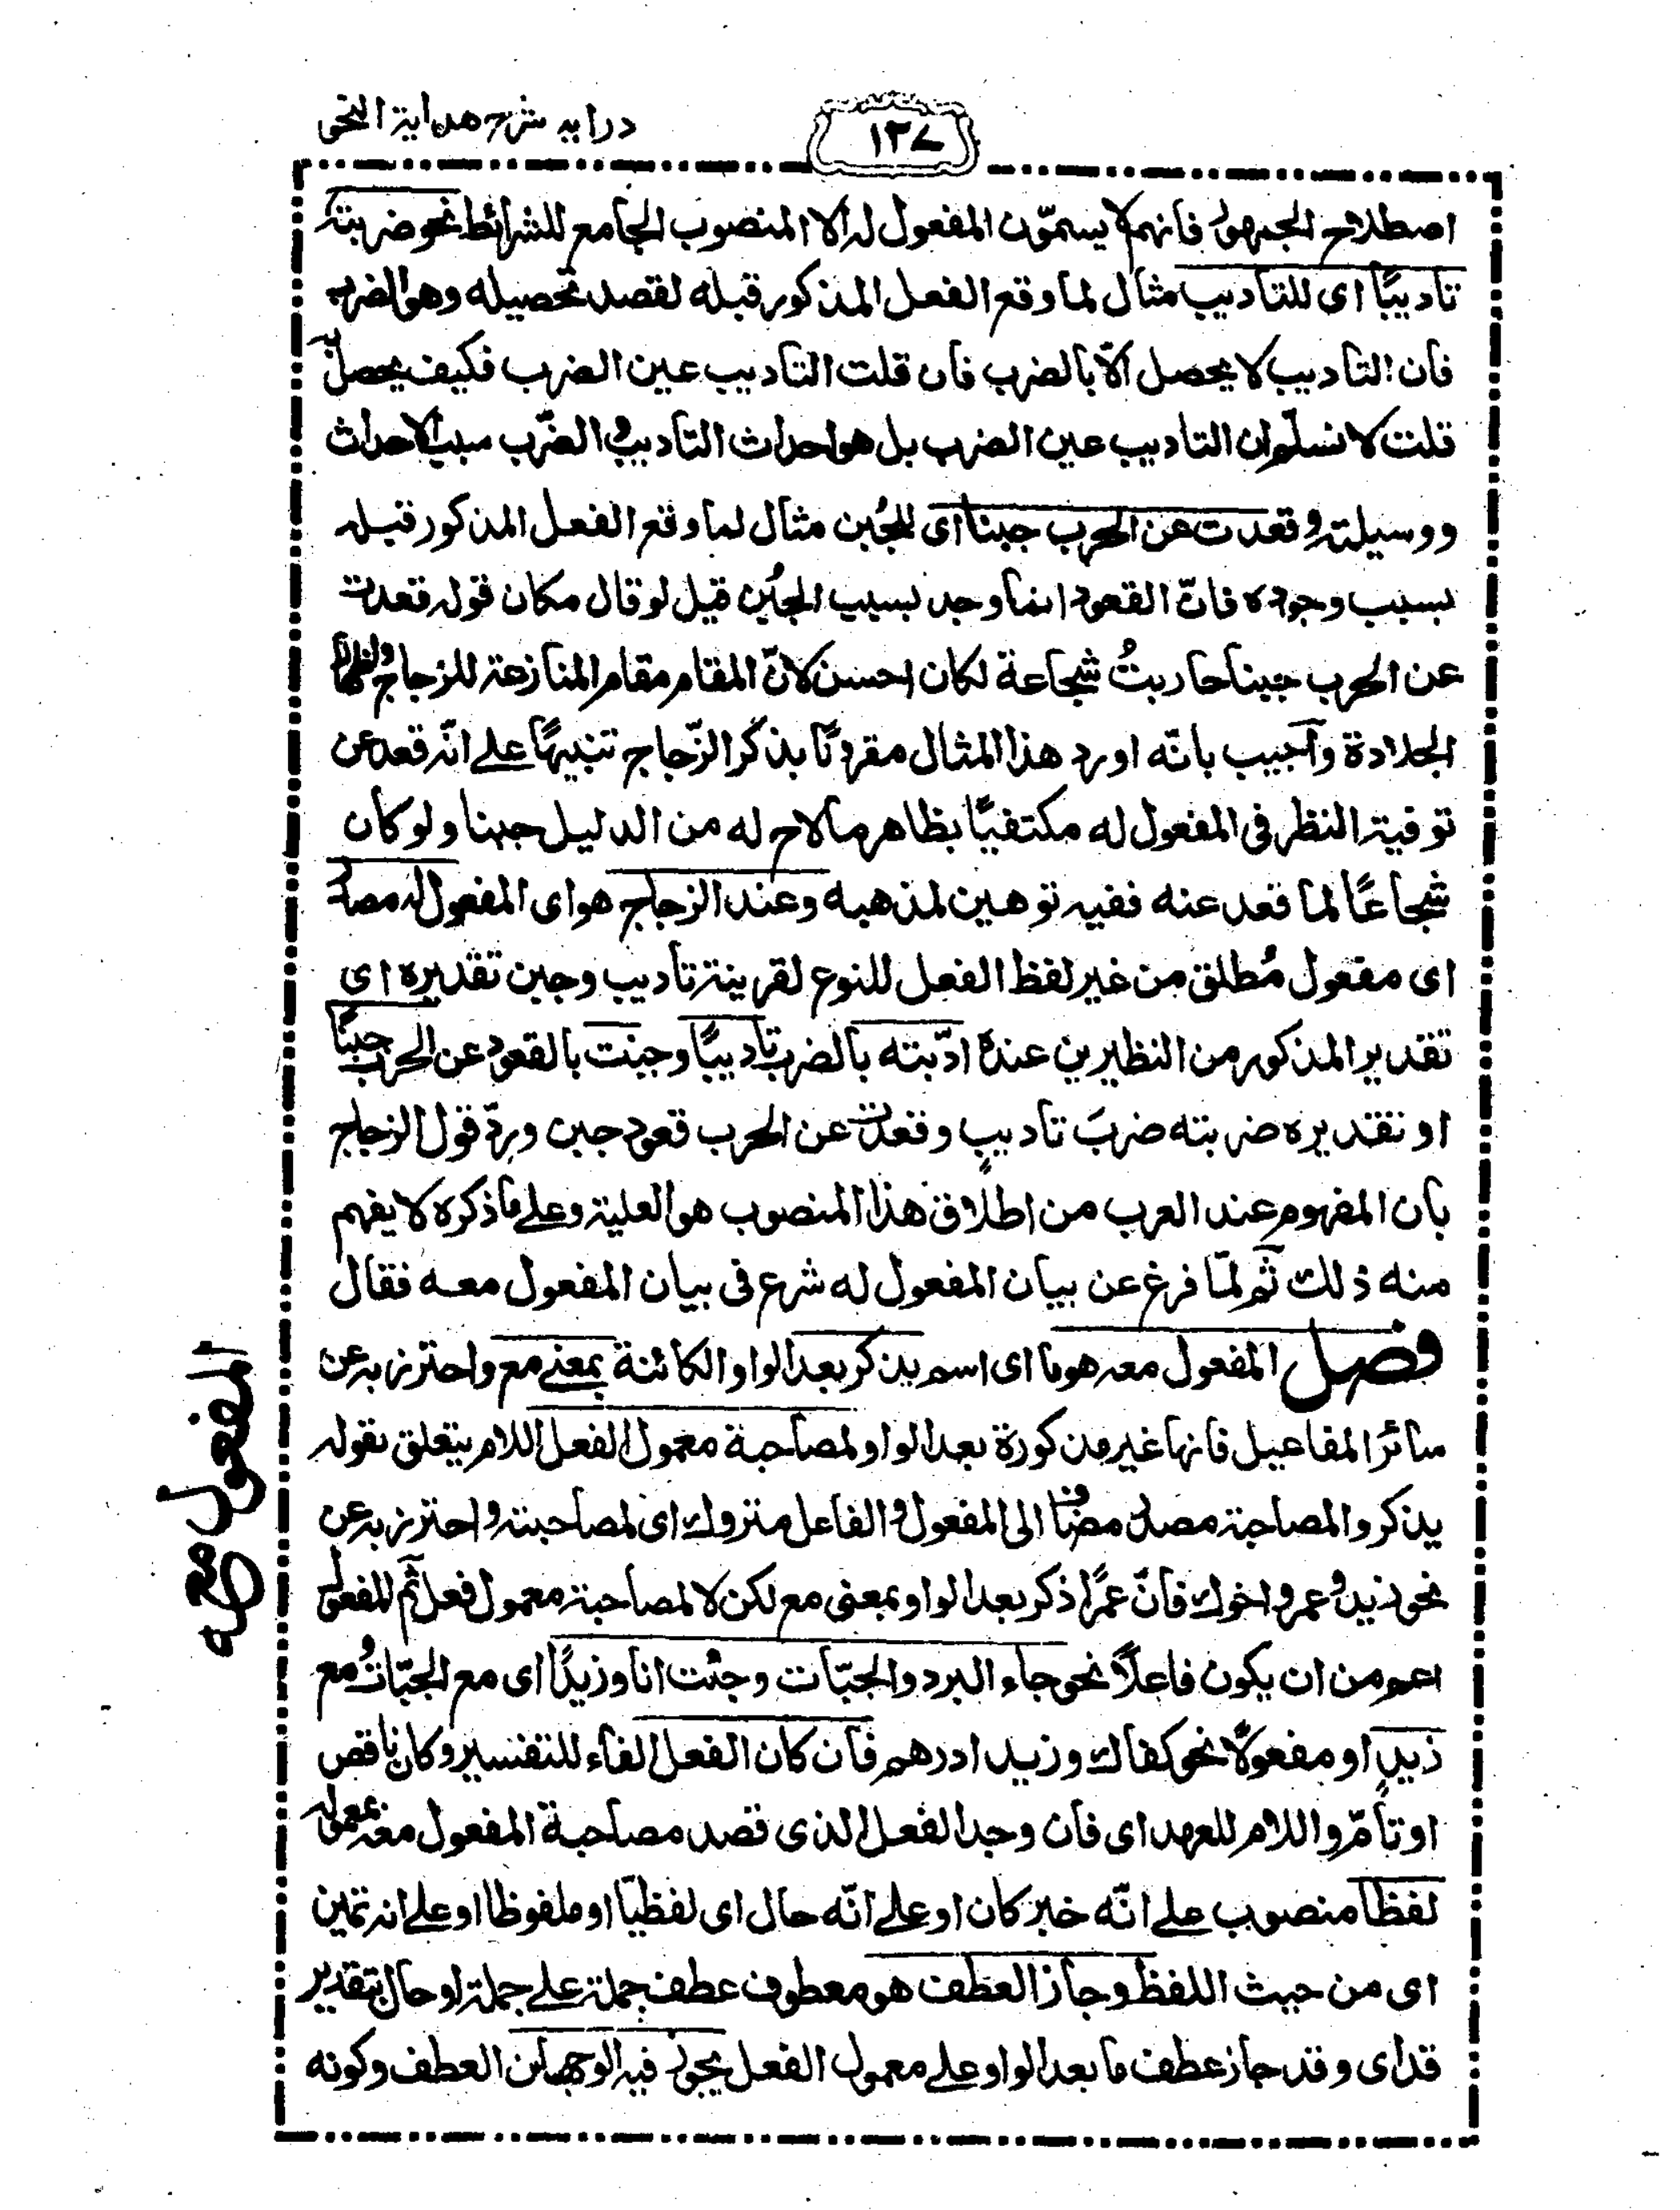 درايه شرح هداية النحو
١٣٧
اصطلاح الجمهور فانهم لا يسمّون المفعول له الا المنصوب الجامع للشرائط نحو ضربته
تاديبًا اى للتاديب مثال لما وقع الفعل المذكور قبله لقصد تحصيله وهو الضرب
فان التاديب لا يحصل الّا بالضرب فان قلت التاديب عين الضرب فكيف يحصل به
قلت لا نسلّم ان التاديب عين الضرب بل هو احداث التأديب و الضّرب سبب لاحداث
ووسيلته و قعدت عن الحرب جبنا اى للجُبن مثال لما وقع الفعل المذكور قبله
بسبب وجوده فانّ القعود انما وجد بسبب الجُبن قيل لو قال مكان قوله قعدت
عن الحرب جبنا حاربتُ شجاعة لكان احسن لانّ المقام مقام المنازعة للزجاج
الجلادة وأجيب بانّه اورد هذا المثال مقرونًا بذكر الزّجاج تنبيهًا على انّه قعد عن
توفية النظر فى المفعول له مكتفيًا بظاهر ما لاح له من الدليل جبنا ولو كان
شجاعًا لما قعد عنه ففيه توهين لمذهبه وعند الزجاج هو اى المفعول له مصدر
اى مفعول مُطلق من غير لفظ الفعل للنوع لقرينة تأديب وجبن تقديره اى
تقدير المذكور من النظيرين عنده ادّبته بالضرب تاديبًا وجبنت بالقعود عن الحرب جبنًا
او تقديره ضربته ضربَ تاديبٍ وقعدت عن الحرب قعود جبن وردّ قول الزجاج
بان المفهوم عند العرب من اطلاق هذا المنصوب هو العلية وعلى ما ذكره لا يفهم
منه ذلك ثم لمّا فرغ عن بيان المفعول له شرع فى بيان المفعول معه فقال
فصل المفعول معه هو ما اى اسم يذكر بعد الواو الكائنة بمعنى مع واحترز به عن
سائر المفاعيل فانها غير مذكورة بعد الواو لمصاحبة معمول الفعل اللام يتعلق بقوله
يذكر والمصاحبة مصدر مضاف الى المفعول و الفاعل متروك اى لمصاحبته و احترز به عن
نحو زيد و عمرو اخوك فانّ عمرًا ذكر بعد الواو بمعنى مع لكن لا لمصاحبة معمول فعل ثم المفعول
اعم من ان يكون فاعلًا نحو جاء البرد والجبّات وجئت انا وزيدًا اى مع الجبّات و مع
زيدٍ او مفعولًا نحو كفاك وزيدا درهم فان كان الفعل الفاء للتفسير وكان ناقص
او تامّ واللام للعهد اى فان وجد الفعل الذى قصد مصاحبة المفعول معه بمعموله
لفظا منصوب على انّه خبر كان او على انّه حال اى لفظيّا او ملفوظا او على انه تميز
اى من حيث اللفظ وجاز العطف هو معطوف عطف جملة على جملة او حال بتقدير
قد اى وقد جاز عطف ما بعد الواو على معمول الفعل يجوز فيه الوجهان العطف وكونه
المفعول معه